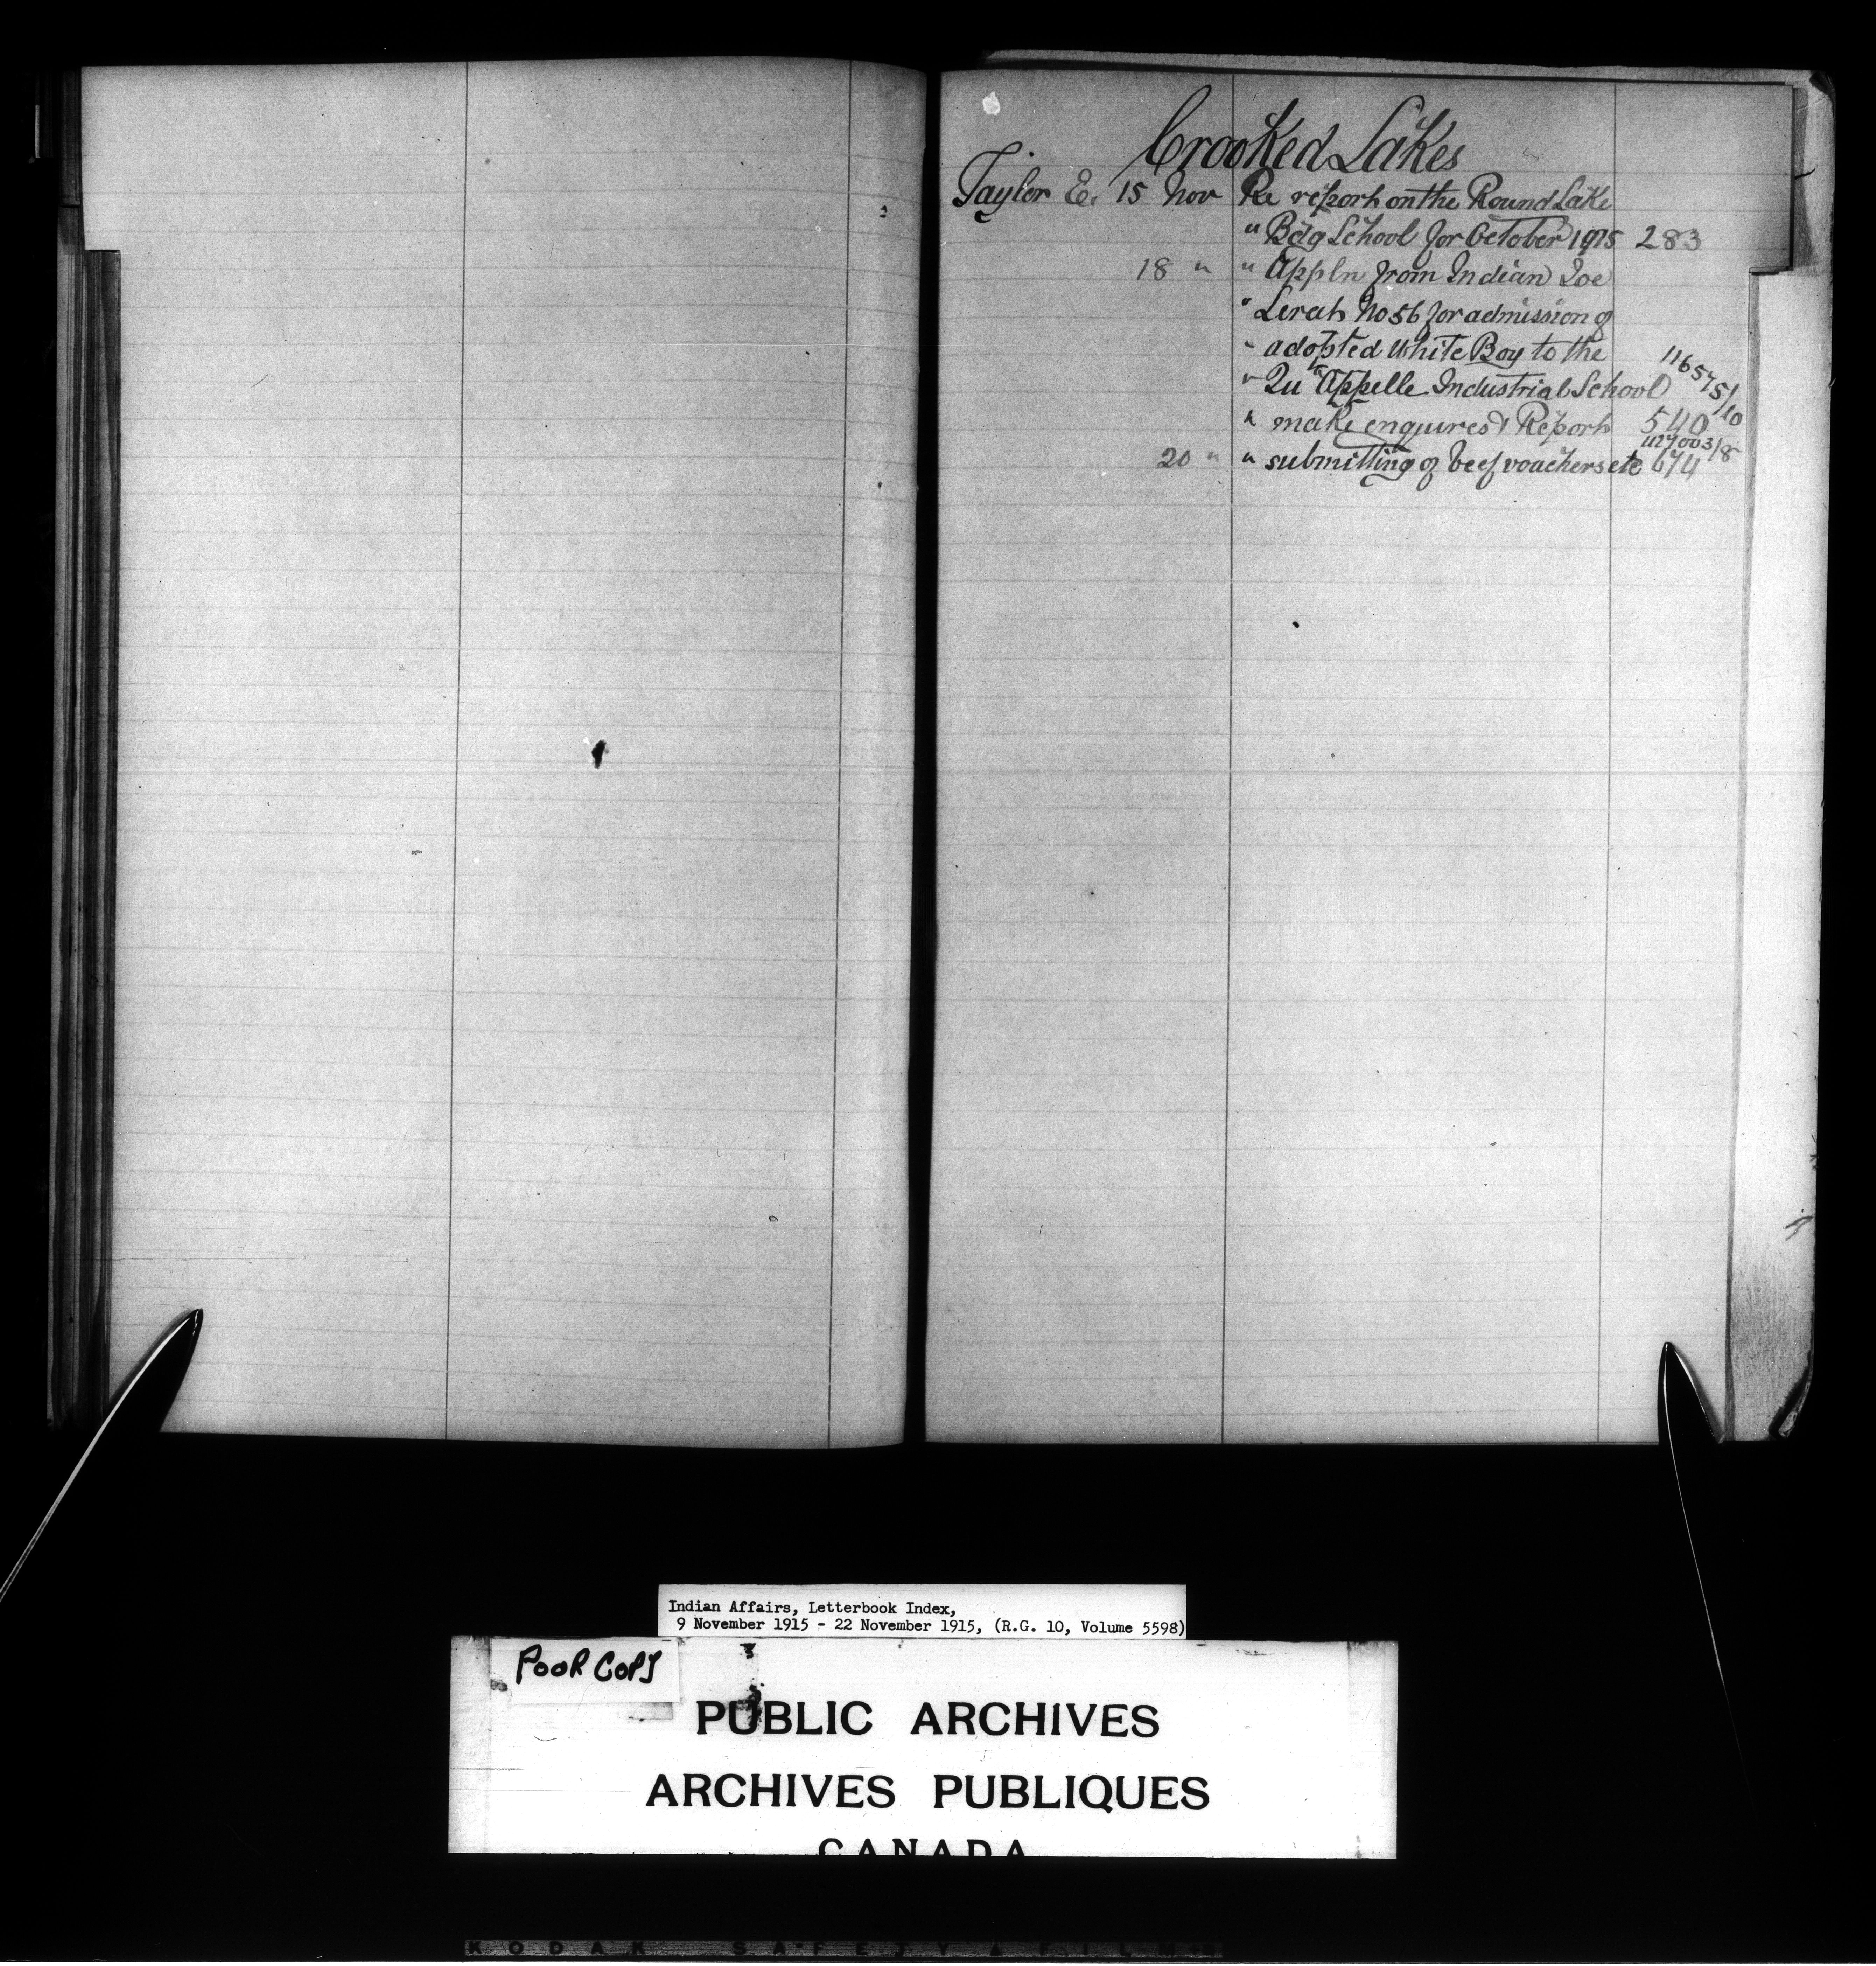 Crooked Lakes
Taylor E. 15 Nov Re report on the Round Lake
" Bdg School for October 1915 283
18 " " Appln from Indian Joe
" Lerat No 56 for admission of
" adopted White Boy to the
" Qu'Appelle Industrial School 116575/10
" make enquires & Report 540
427003/8
20 " " submitting of beef vouchers etc 674
Indian Affairs, Letterbook Index,
9 November 1915 - 22 November 1915, (R.G. 10, Volume 5598)
POOR COPY
PUBLIC ARCHIVES
ARCHIVES PUBLIQUES
CANADA
KODAK SAFETY FILM